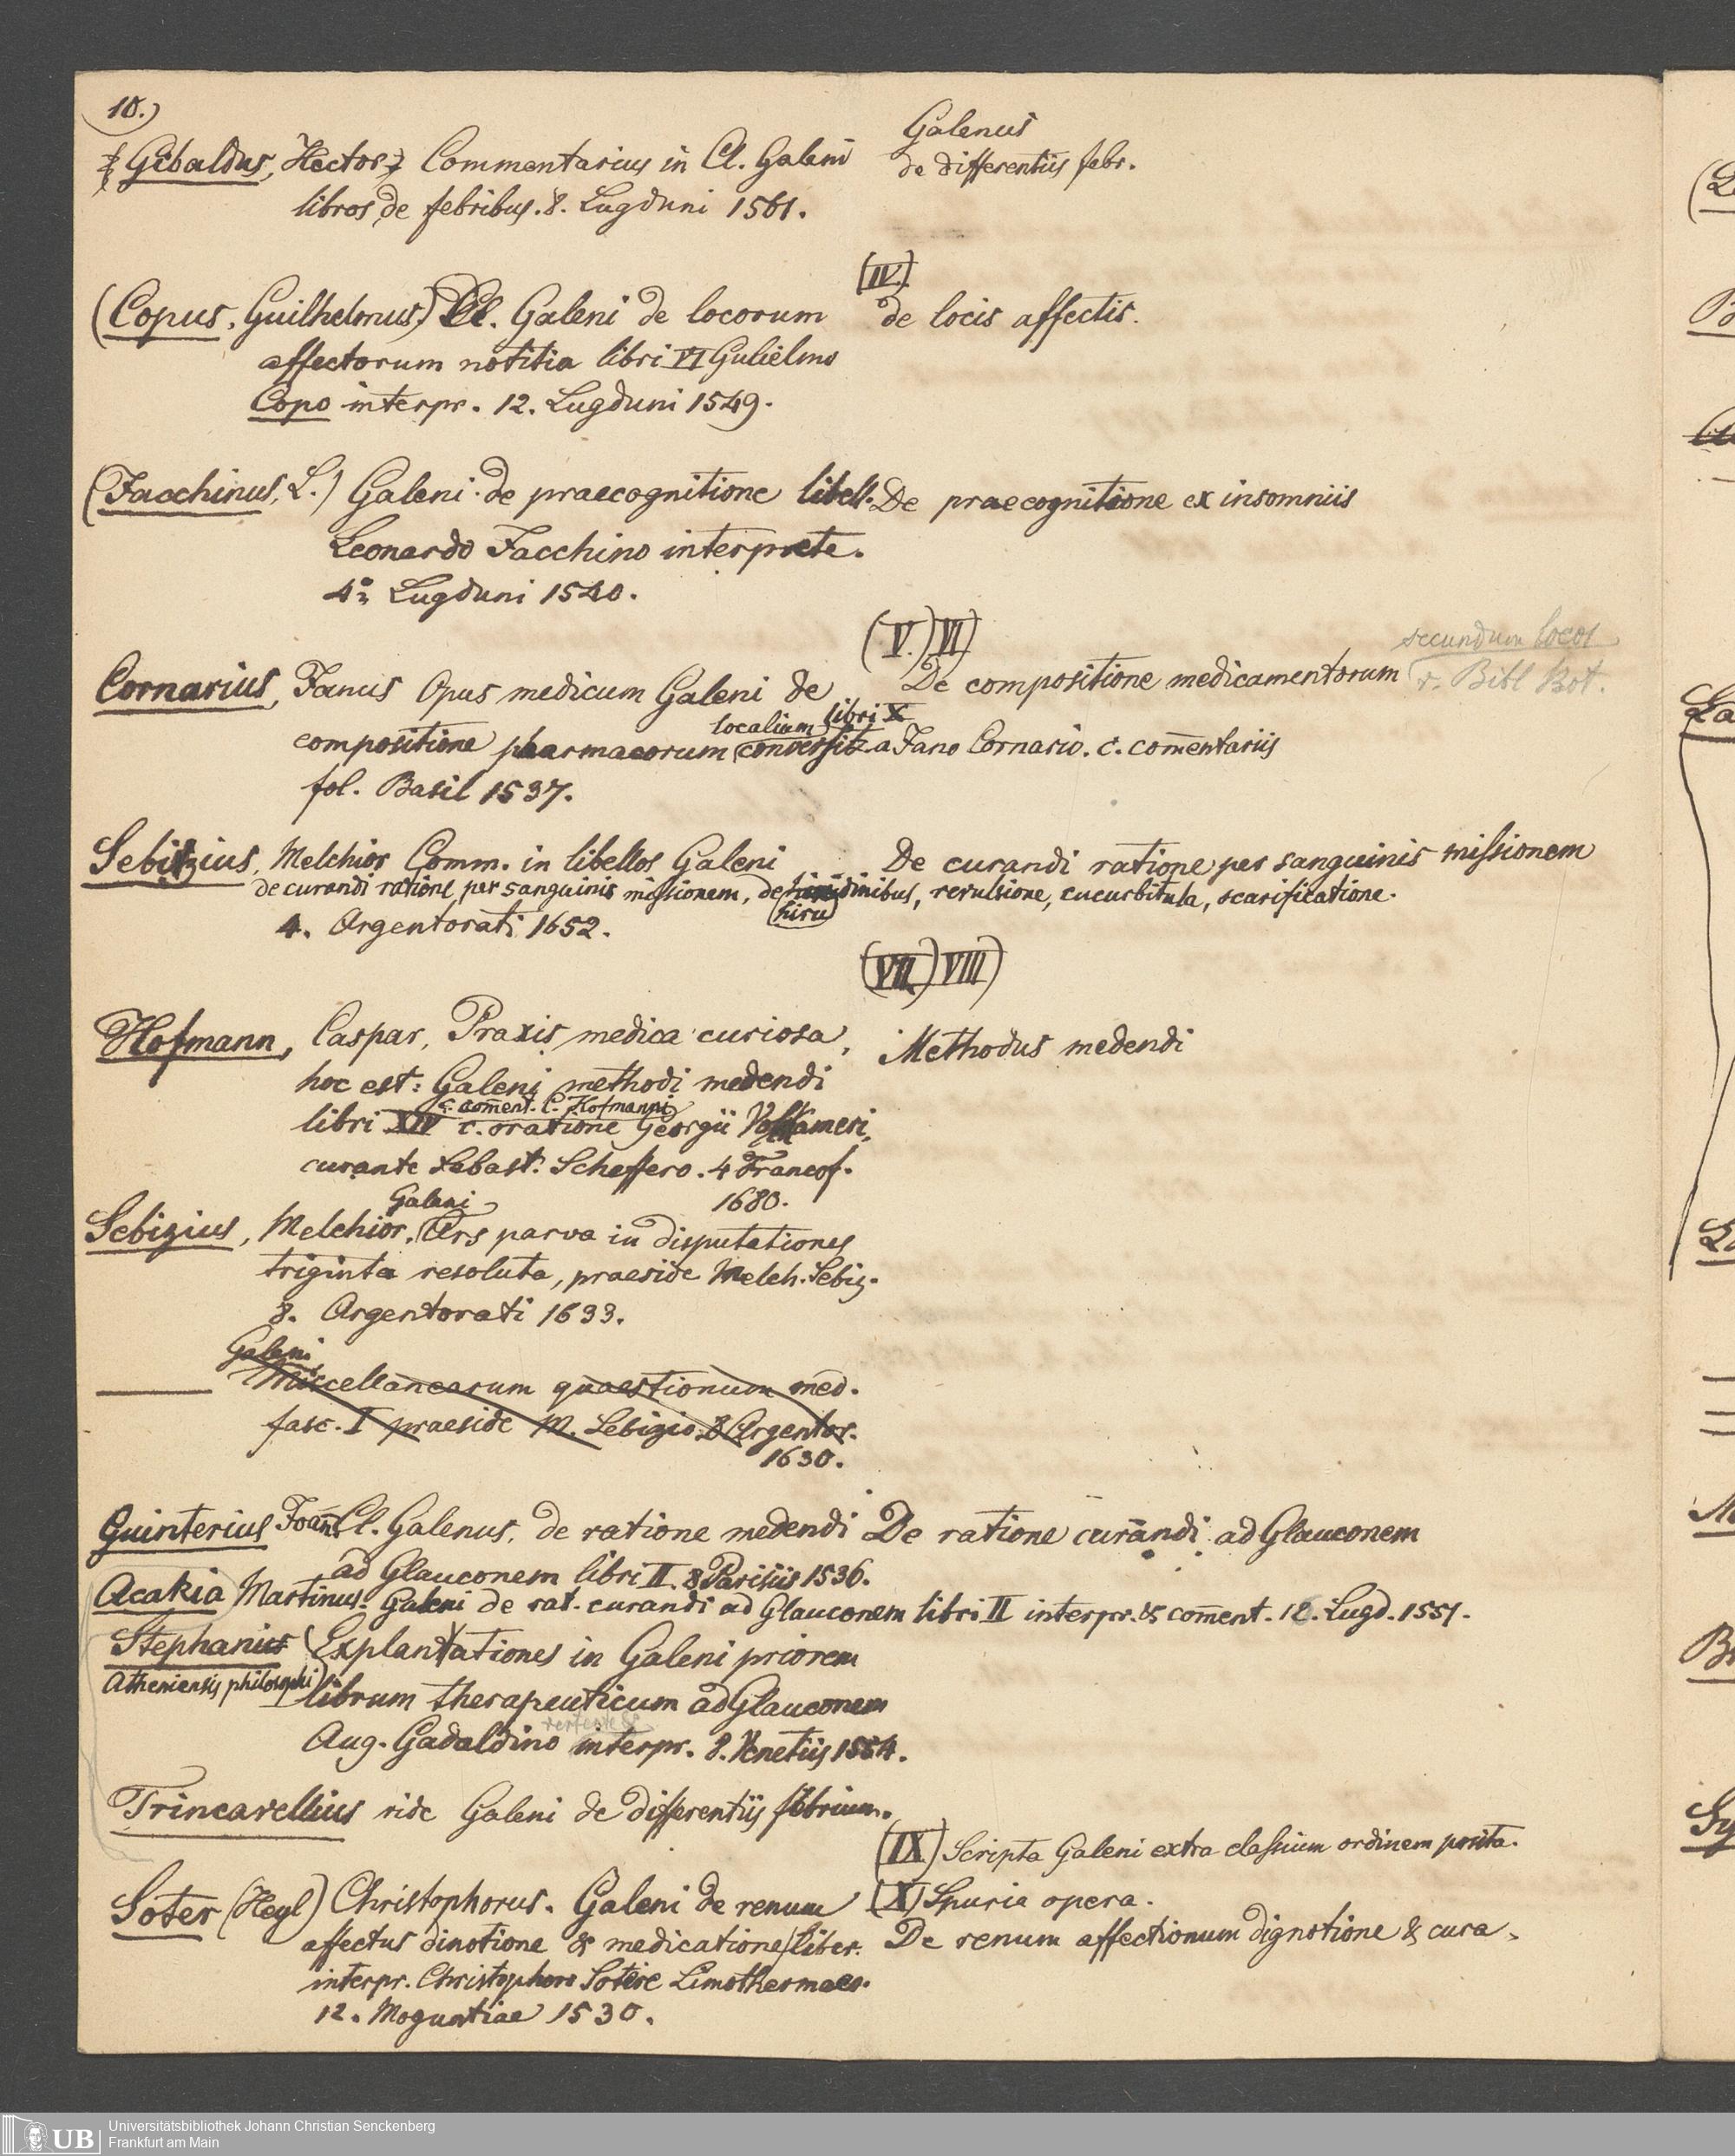 10.)
Galenus
(Gibaldus, Hector) Commentarius in Cl. Galeni de differentiis febr.
libros de febribus. 8. Lugduni 1561.
(IV.)
(Copus, Guilhelmus,) Cl. Galeni de locorum de locis affectis.
affectorum notitia libri VI Gulielmo
Copo interpr. 12. Lugduni 1549.
(Jacchinus, L.) Galeni de praecognitione libell. De praecognitione ex insomniis
Leonardo Jacchino interprete.
4o Lugduni 1540.
(V.) VI)
secundum locos
Cornarius, Janus Opus medicum Galeni de De compositione medicamentorum v. Bibl Bot.
localium libri X
compositione pharmacorum conversi a Jano Cornario. c. com̄entariis
fol. Basil 1537.
Sebitzius, Melchior Comm. in libellos Galeni De curandi ratione per sanguinis missionem
de curandi ratione per sanguinis missionem, de hirudinibus, revulsione, cucurbitula, scarificatione.
hiru
4. Argentorati 1652.
(VII.) VIII)
Hofmann, Caspar, Praxis medica curiosa, Methodus medendi
hoc est: Galeni methodi medendi
c. com̄ent. C. Hofmanni
libri XIV c. oratione Georgii Volkameri,
curante Sebast. Scheffero. 4 Francof.
1680.
Galeni
Sebizius, Melchior. Ars parva in disputationes
triginta resoluta, praeside Melch. Sebiz.
8. Argentorati 1633.
Galeni
Miscellanearum quaestionum med.
fasc. I praeside M. Sebizio. 8 Argentor.
1630.
Guinterius Joan̄. Cl. Galenus, de ratione medendi De ratione curandi ad Glauconem
ad Glauconem libri II. 8 Parisiis 1536.
Acakia Martinus. Galeni de rat. curandi ad Glauconem libri II interpr. & com̄ent. 12. Lugd. 1551.
Stephanius Explanationes in Galeni priorem
Atheniensis philosophi
librum therapeuticum ad Glauconem
Aug. Gadaldino interpr. 8. Venetiis 1554.
Trincavellius vide Galeni de differentiis febrium.
(IX) Scripta Galeni extra classium ordinem posita.
(X) Spuria opera.
Soter (Heyl) Christophorus. Galeni de renum
affectus dinotione & medicatione liber. De renum affectionum dignotione & cura.
interpr. Christophoro Sotere Limothermaeo.
12. Moguntiae 1530.
UB
Universitätsbibliothek Johann Christian Senckenberg
Frankfurt am Main